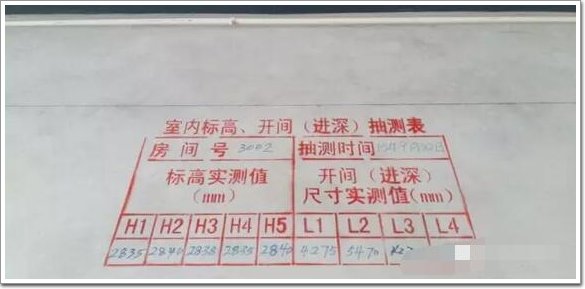 室内标高、开间（进深）抽测表
房间号 3002 抽测时间
标高实测值 开间（进深）
（mm） 尺寸实测值（mm）
H1 H2 H3 H4 H5 L1 L2 L3 L4
2835 2840 2838 2835 2840 4275 5470